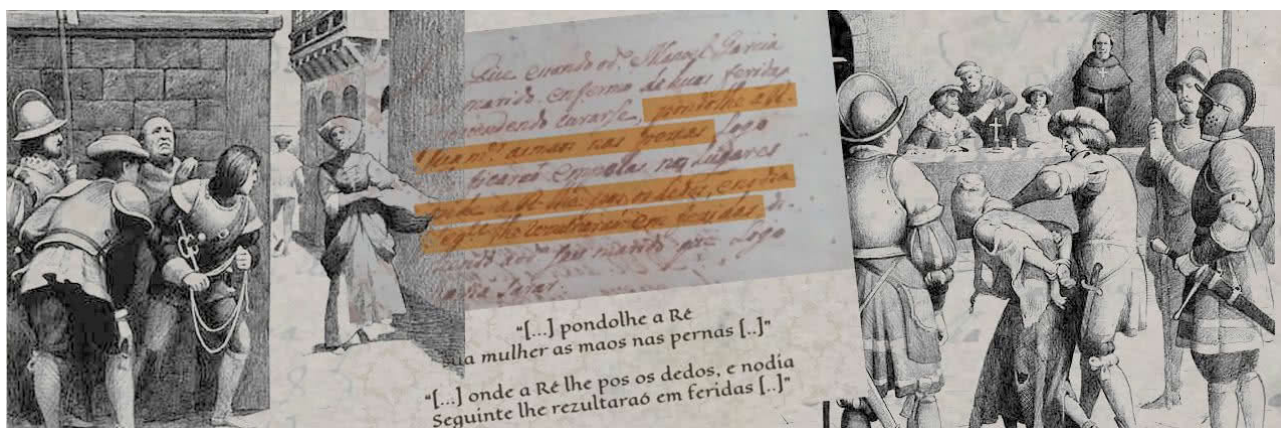 Que cuando od.º Manoel Garcia
marido enfermo de huas feridas
pertendendo curarse, pondolhe a R.
sua m.er as maos nas pernas logo
ficaraõ empolas nos lugares
onde a Ré lhe pos os dedos, e no dia
Seg.te lhe rezultaraõ em feridas di
seu marido que logo
"[...] pondolhe a Ré
sua mulher as maos nas pernas [..]"
"[...] onde a Ré lhe pos os dedos, e nodia
Seguinte lhe rezultaraó em feridas [..]"